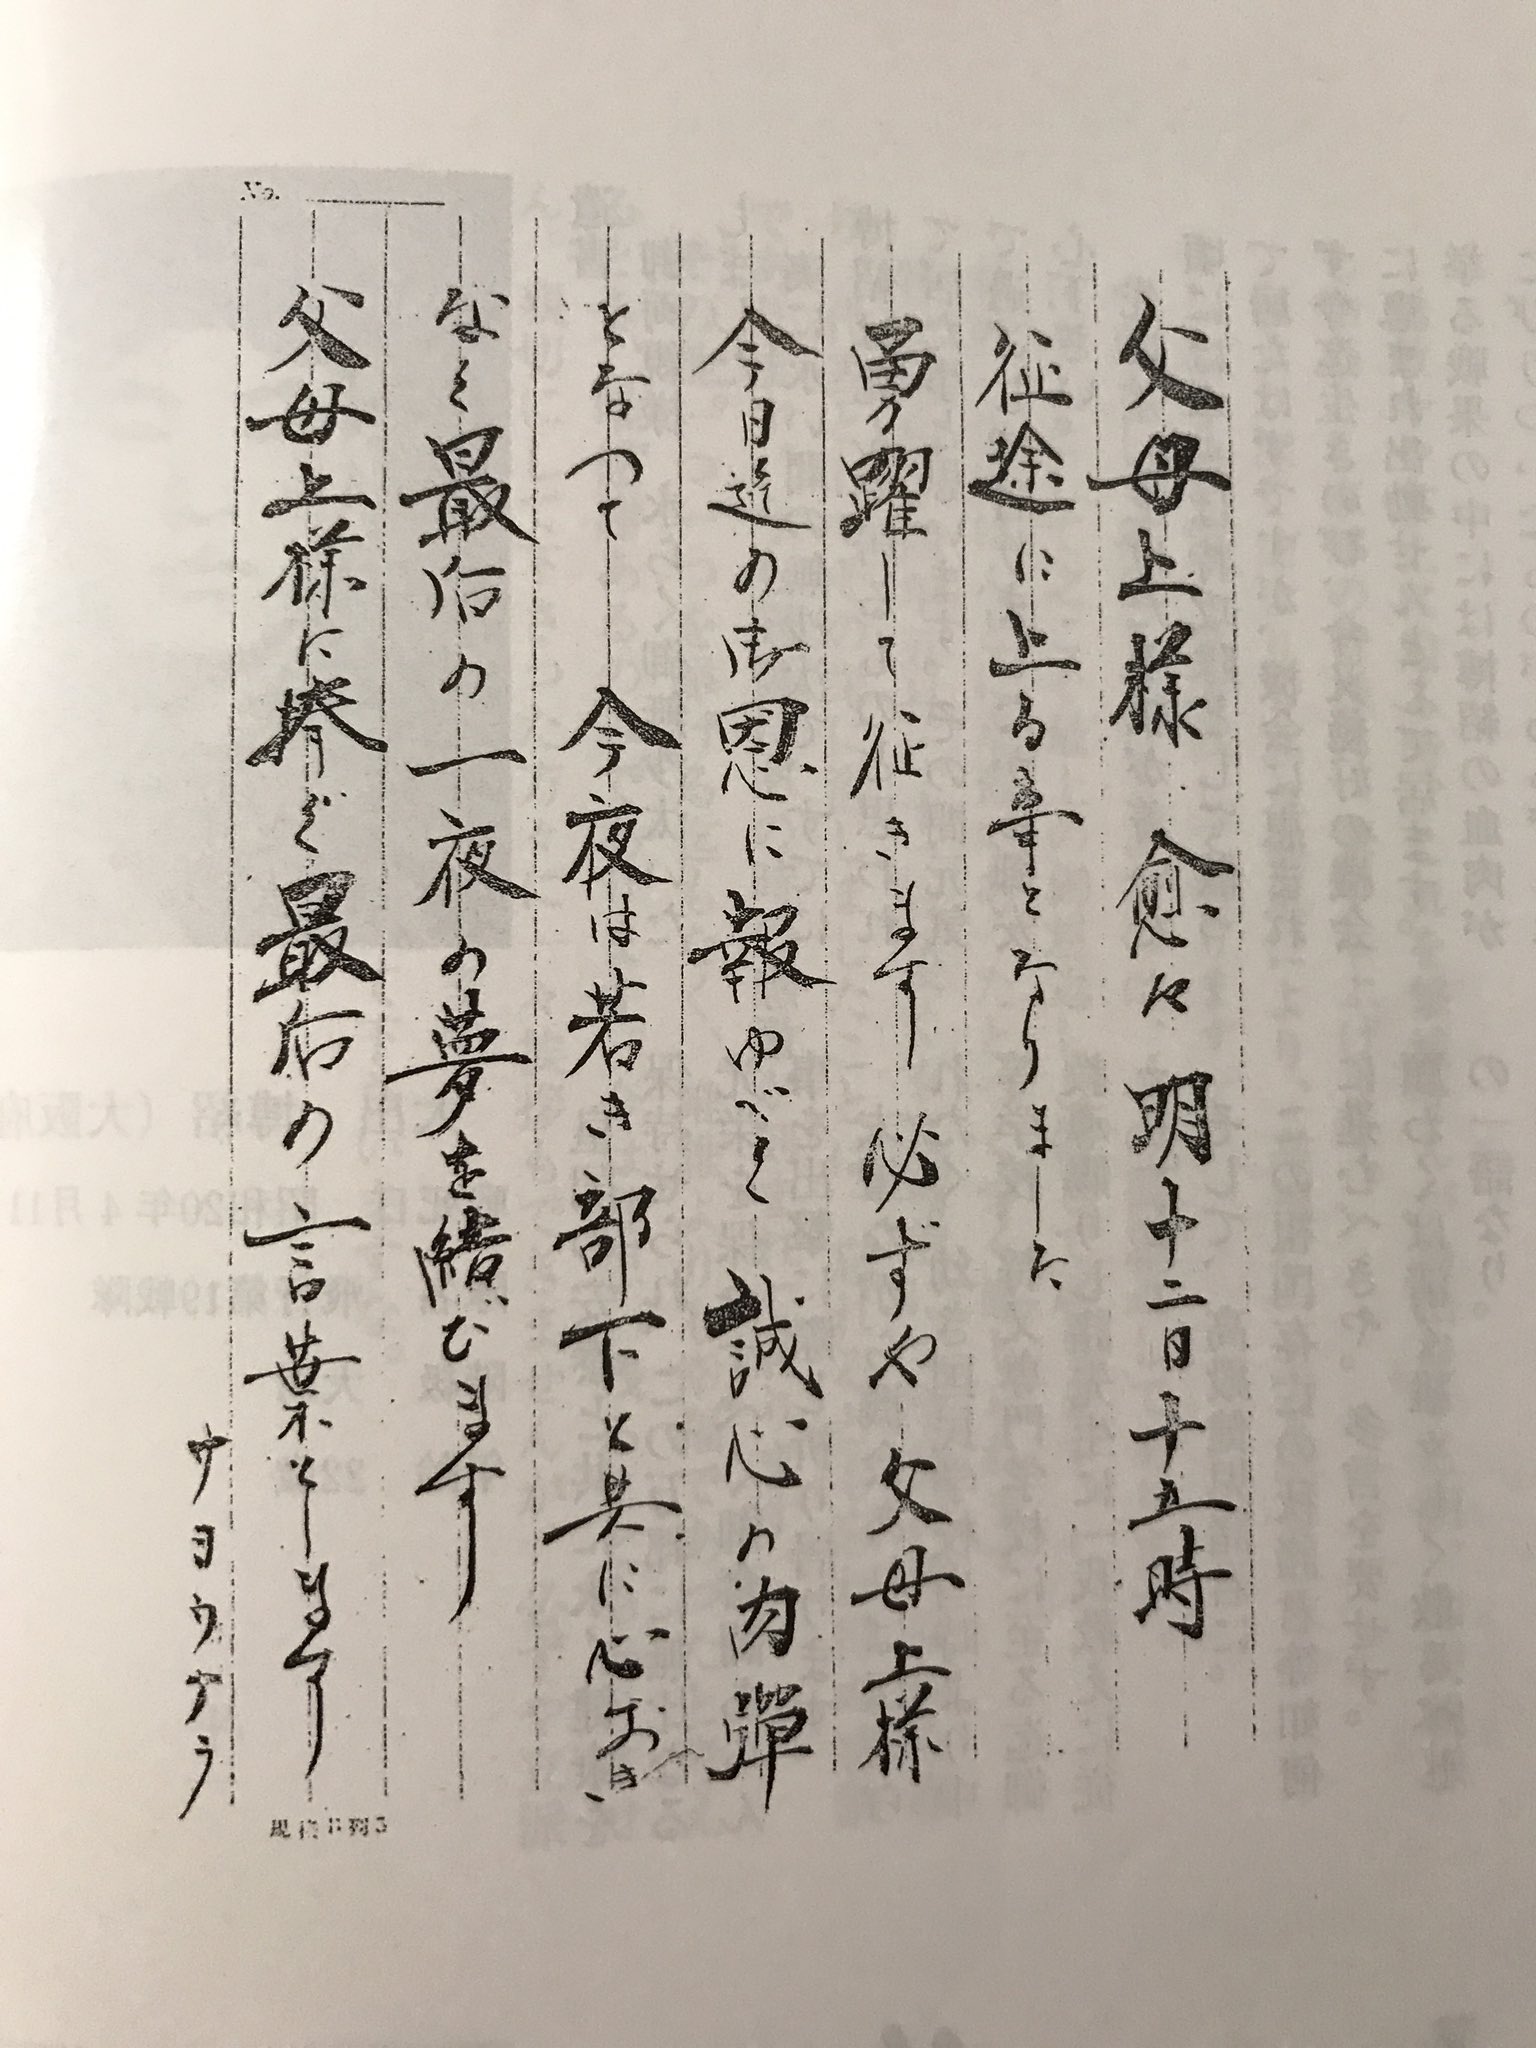 父母上様　愈々　明十二日十五時
征途に上る幸となりました
勇躍して征きます　必ずや　父母上様
今日迄の御恩に報ゆべく　誠心の肉弾
となつて　今夜は若き部下と共に心おき
なく最后の一夜の夢を結びます
父母上様に捧ぐ最后の言葉とします
サヨウナラ
No.
規格B判5